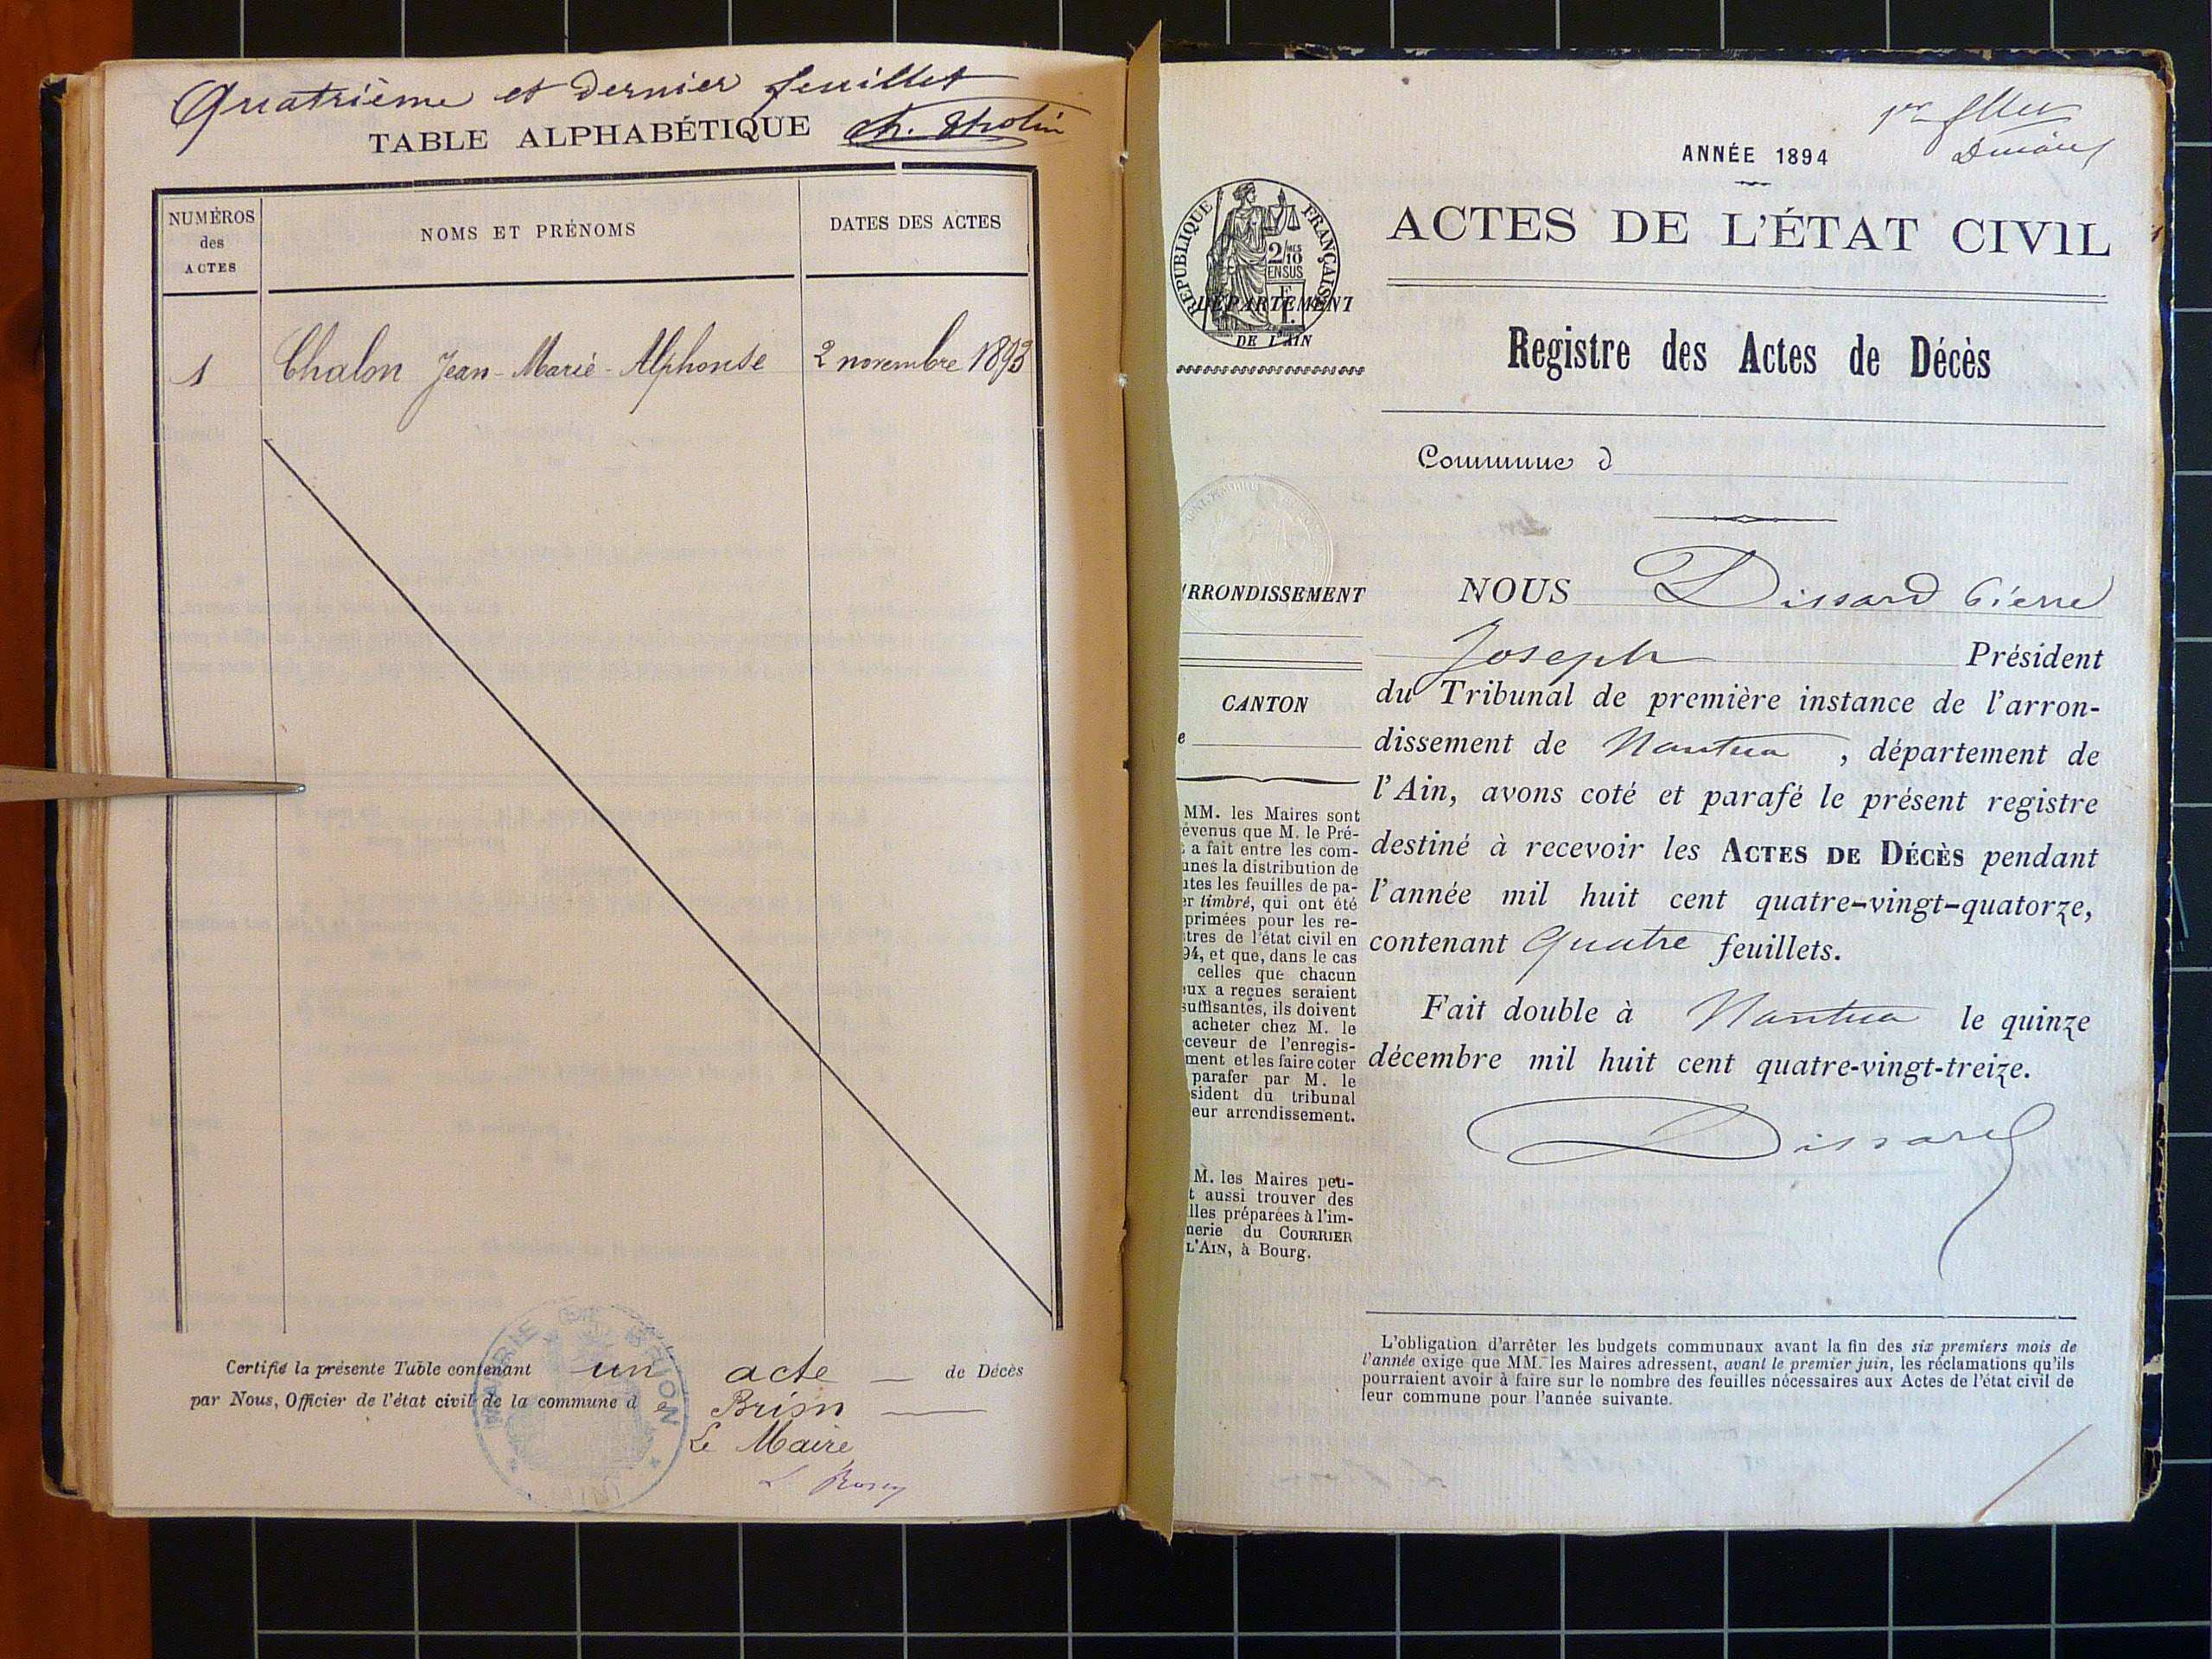 Quatrième et dernier feuillet
TABLE ALPHABÉTIQUE
NUMÉROS
des
ACTES
NOMS ET PRÉNOMS
DATES DES ACTES
1
Chalon Jean-Marie-Alphonse
2 novembre 1893
Certifié la présente Table contenant un acte — de Décès
par Nous, Officier de l'état civil de la commune de Brion —
Le Maire
MAIRIE DE BRION
1er
ANNÉE 1894
ACTES DE L'ÉTAT CIVIL
RÉPUBLIQUE FRANÇAISE
2/10mes
EN SUS
DÉPARTEMENT
DE L'AIN
Registre des Actes de Décès
Commune d
RRONDISSEMENT
CANTON
e
MM. les Maires sont
évenus que M. le Pré-
t a fait entre les com-
unes la distribution de
utes les feuilles de pa-
er timbré, qui ont été
primées pour les re-
tres de l'état civil en
94, et que, dans le cas
celles que chacun
eux a reçues seraient
suffisantes, ils doivent
acheter chez M. le
ceveur de l'enregis-
ment et les faire coter
parafer par M. le
sident du tribunal
eur arrondissement.
M. les Maires peu-
t aussi trouver des
lles préparées à l'im-
nerie du COURRIER
L'AIN, à Bourg.
NOUS Dissard Pierre
Joseph Président
du Tribunal de première instance de l'arron-
dissement de Nantua, département de
l'Ain, avons coté et parafé le présent registre
destiné à recevoir les ACTES DE DÉCÈS pendant
l'année mil huit cent quatre-vingt-quatorze,
contenant quatre feuillets.
Fait double à Nantua le quinze
décembre mil huit cent quatre-vingt-treize.
Dissard
L'obligation d'arrêter les budgets communaux avant la fin des six premiers mois de
l'année exige que MM. les Maires adressent, avant le premier juin, les réclamations qu'ils
pourraient avoir à faire sur le nombre des feuilles nécessaires aux Actes de l'état civil de
leur commune pour l'année suivante.